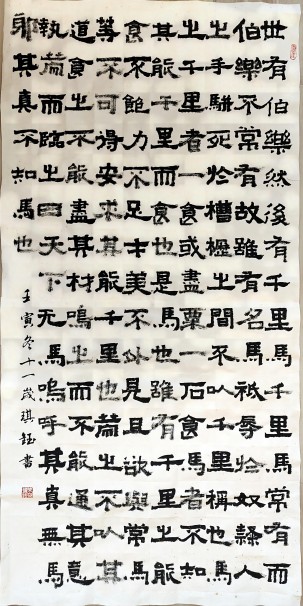 世有伯樂然後有千里馬千里馬常有而
伯樂不常有故雖有名馬祇辱於奴隸人
之手駢死於槽櫪之間不以千里稱也馬
之千里者一食或盡粟一石食馬者不知
其能千里而食也是馬也雖有千里之能
食不飽力不足才美不外見且欲與常馬
等不可得安求其能千里也策之不以其
道食之不能盡其材鳴之而不能通其意
執策而臨之曰天下无馬嗚呼其真無馬
邪其真不知馬也
壬寅冬十一歲琪鈺書